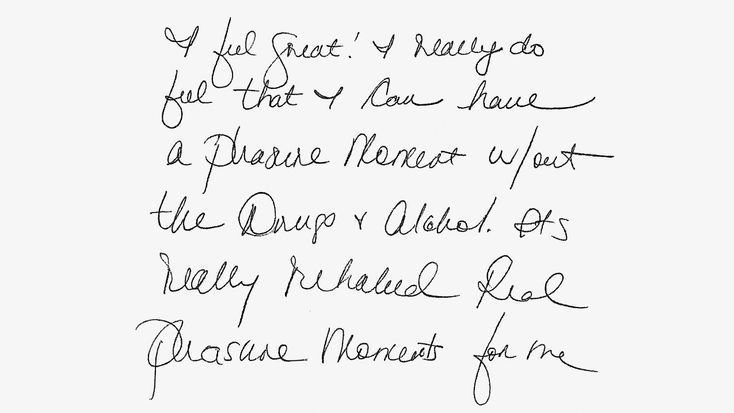 I feel Great! I really do
feel that I Can have
a Pleasure Moment w/out
the Drugs & Alcohol. Its
really
Real
Pleasure Moments for me